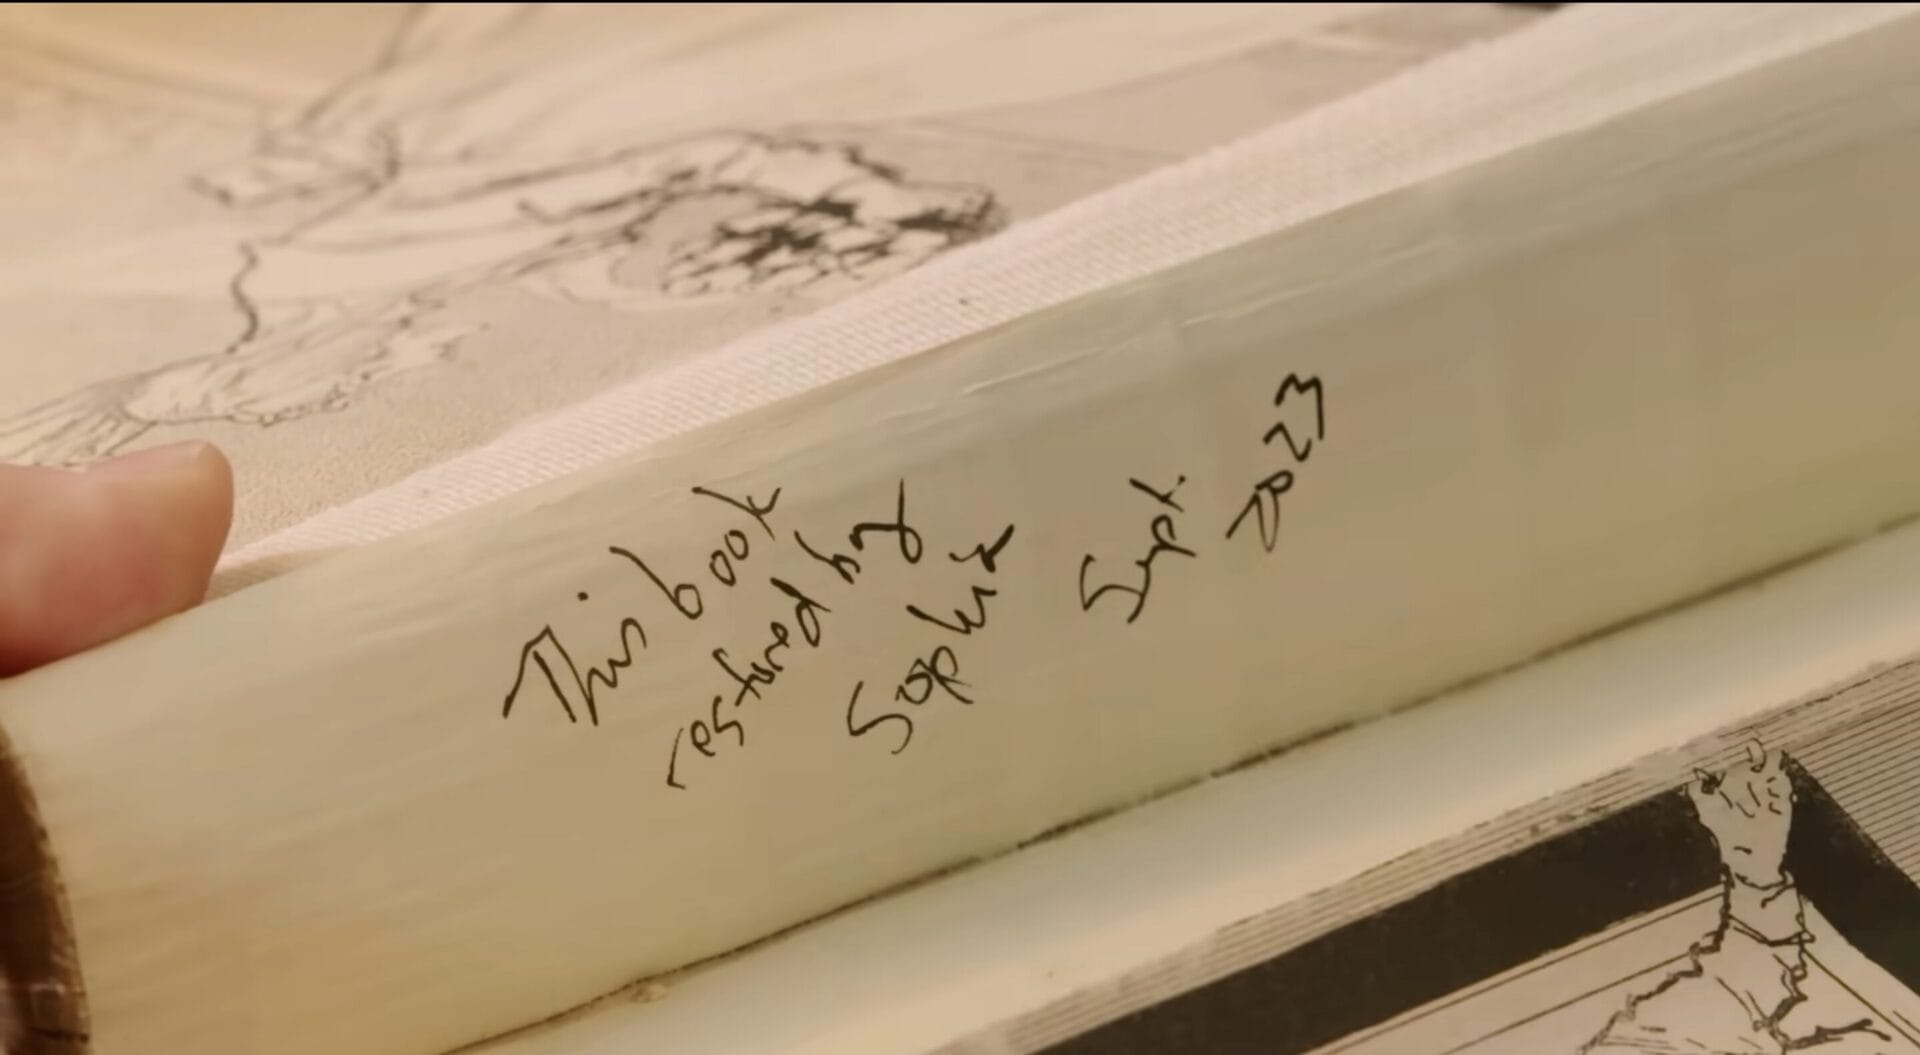 This book
restored by
Sophia
Sept.
2023